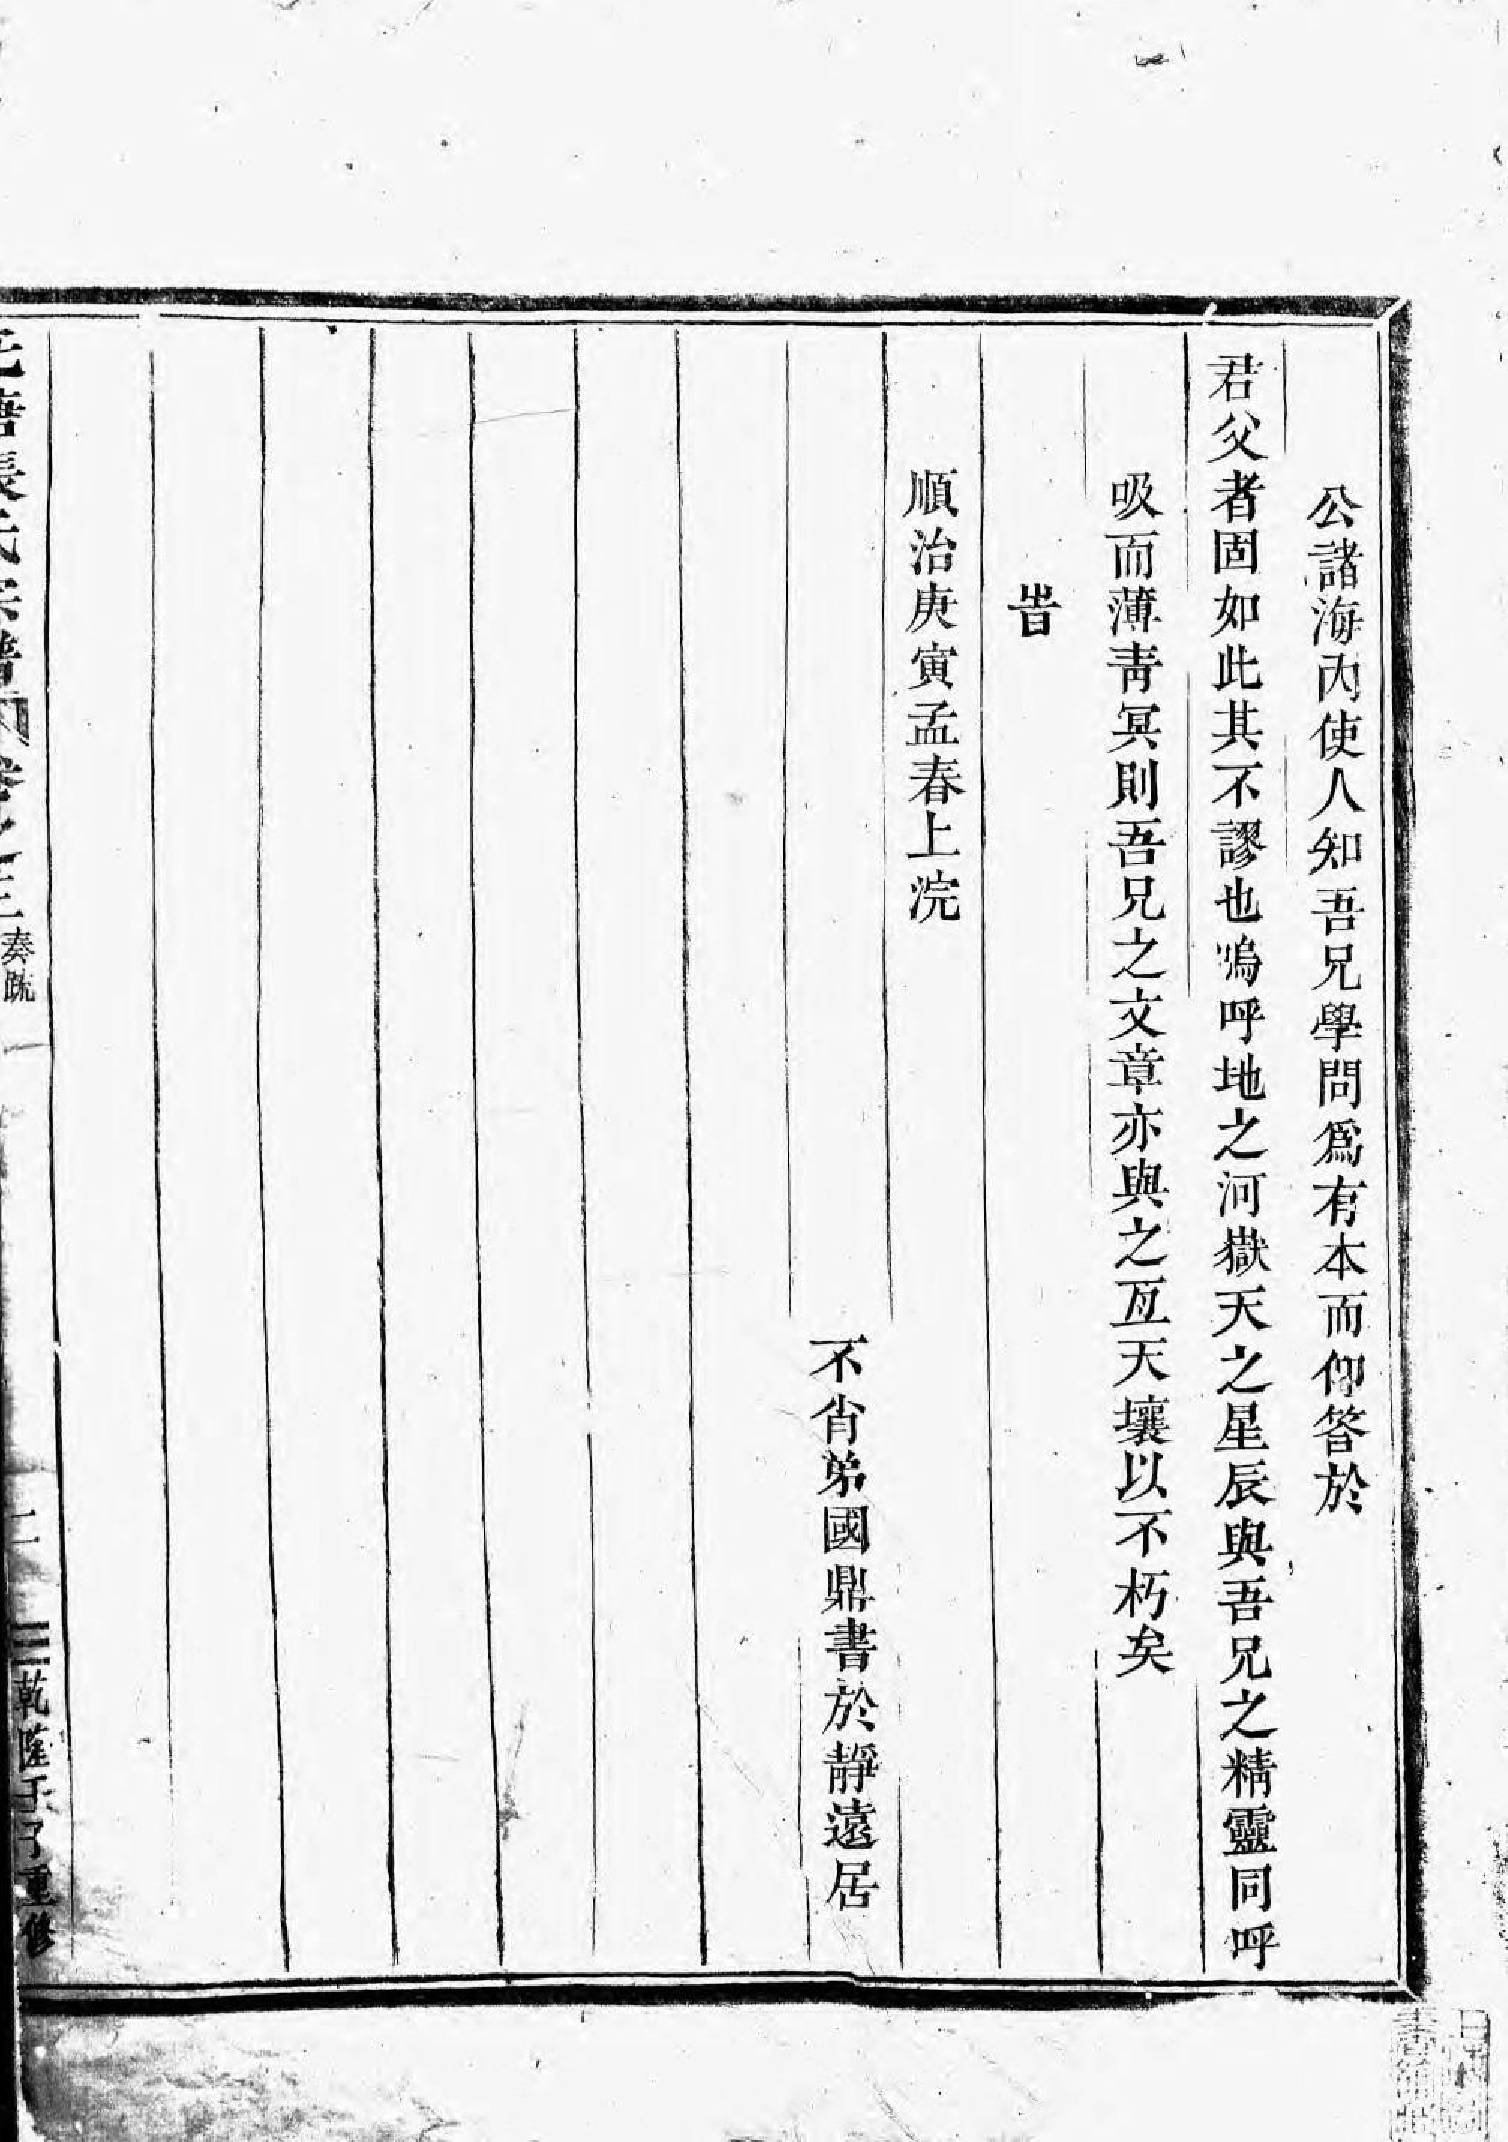 公諸海內使人知吾兄學問爲有本而仰答於
君父者固如此其不謬也嗚呼地之河嶽天之星辰與吾兄之精靈同呼
吸而薄靑冥則吾兄之文章亦與之亙天壤以不朽矣
旹
順治庚寅孟春上浣
不肖弟國鼎書於靜遠居
張氏宗譜 卷之三 奏疏 一
二 三 乾隆壬子重修